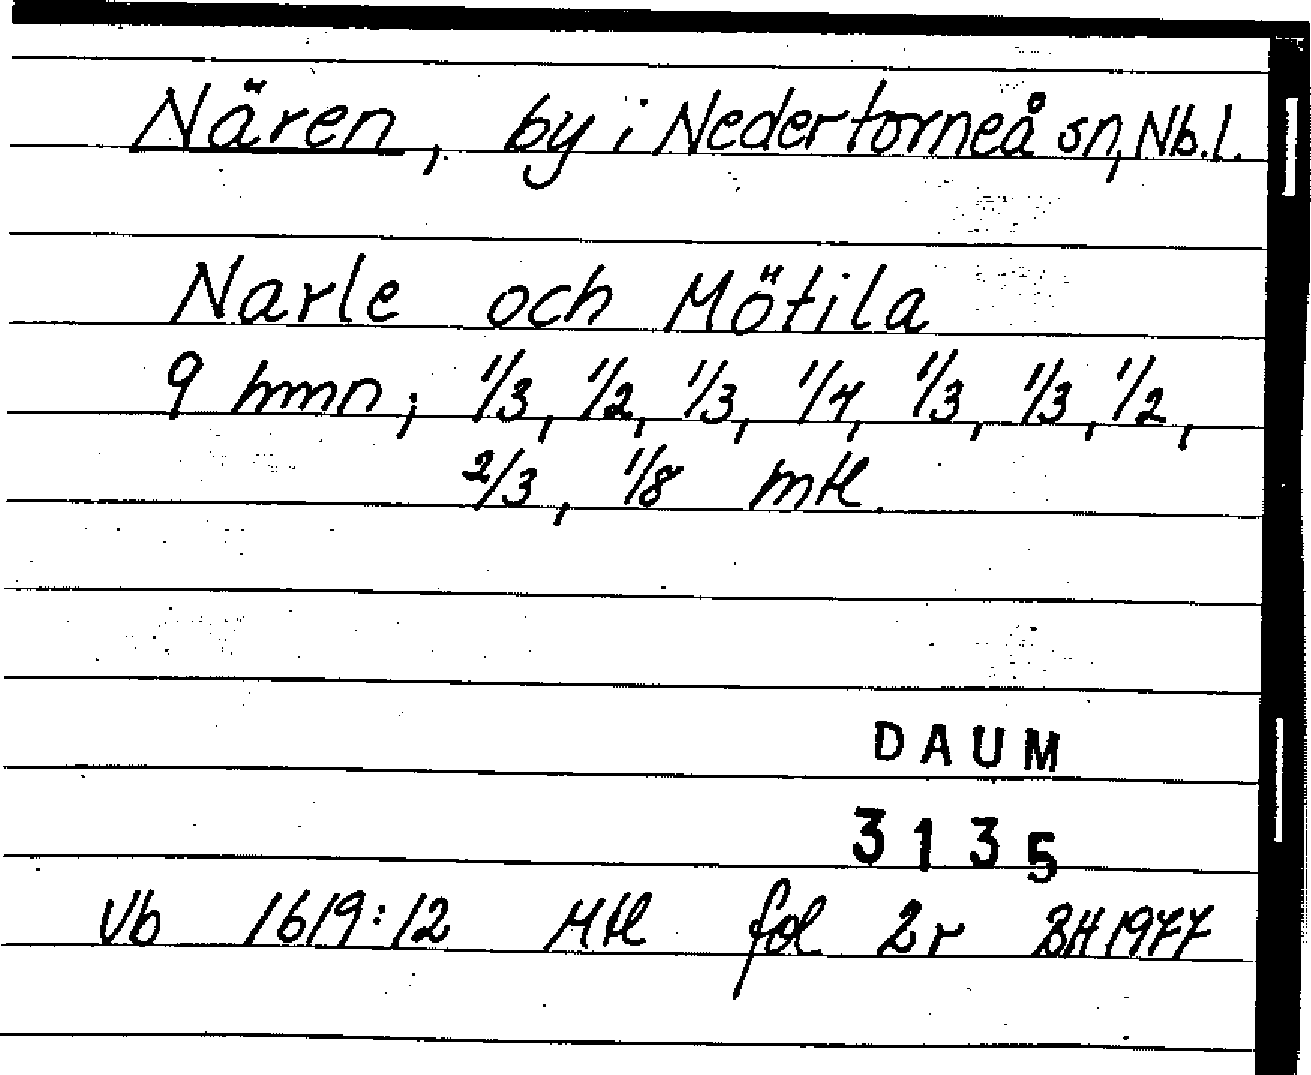 Nären, by i Nedertorneå sn, Nb.l.
Narle och Mötila
9 hmn; 1/3, 1/2, 1/3, 1/4, 1/3, 1/3, 1/2,
2/3, 1/8 mtl.
DAUM
3135
Vb 1619:12 Mtl fol 2r BH 1977